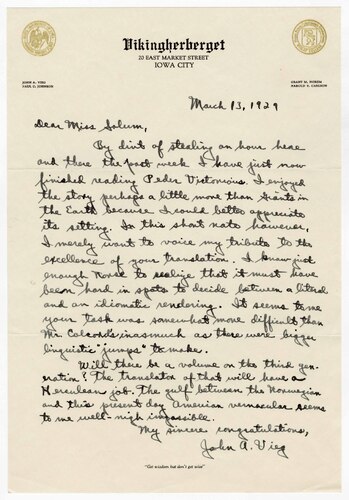 Vikingherberget
20 EAST MARKET STREET
IOWA CITY
JOHN A. VIEG
PAUL O. JOHNSON
GRANT M. NOREM
HAROLD S. CARLSON
March 13, 1929
Dear Miss Solum,
By dint of stealing an hour here
and there the past week I have just now
finished reading Peder Victorious. I enjoyed
the story perhaps a little more than Giants in
the Earth because I could better appreciate
its setting. In this short note however,
I merely want to voice my tribute to the
excellence of your translation. I know just
enough Norse to realize that it must have
been hard in spots to decide between a literal
and an idiomatic rendering. It seems to me
your task was somewhat more difficult than
Mr. Colcord's, inasmuch as there were bigger
linguistic "jumps" to make.
Will there be a volume on the third gen-
eration? The translator of that will have a
Herculean job. The gulf between the Norwegian
and this present day American vernacular seems
to me well-nigh impossible.
My sincere congratulations,
John A. Vieg
"Get wisdom but don't get wise"